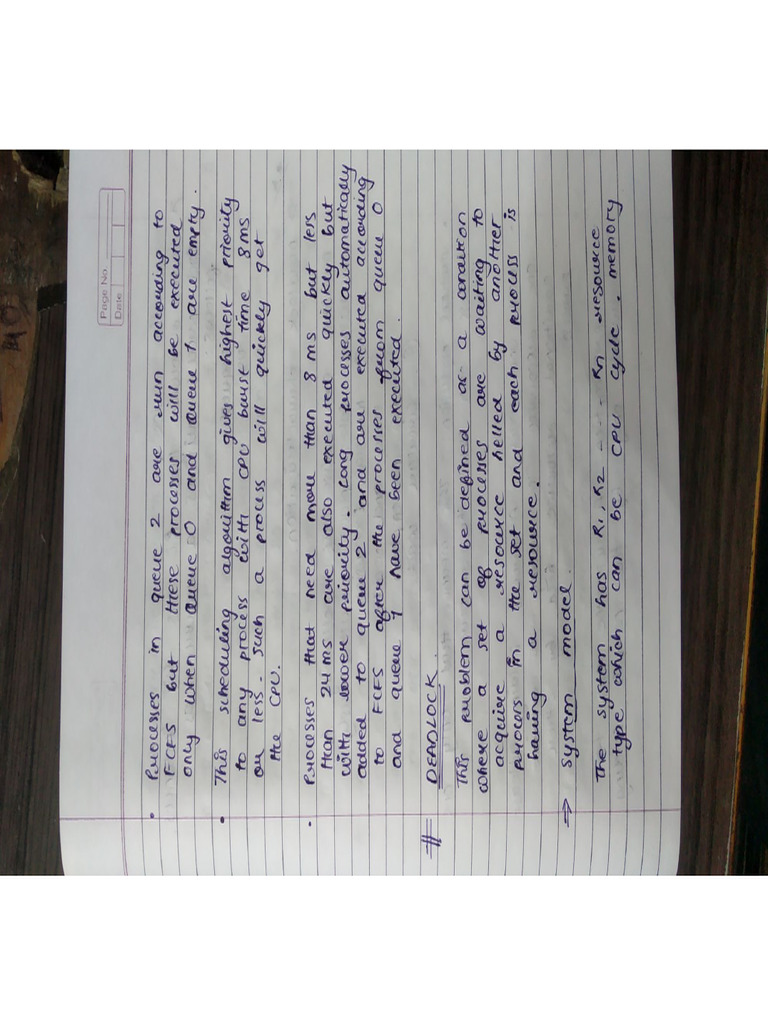 Page No.
Date
• Processes in queue 2 are run according to
FCFS but these processes will be executed
only when queue 0 and queue 1 are empty.
• This scheduling algorithm gives highest priority
to any process with CPU burst time 8ms
or less. such a process will quickly get
the CPU.
• Processes that need more than 8 ms but less
than 24 ms are also executed quickly but
with lower priority. Long processes automatically
added to queue 2 and are executed according
to FCFS after the processes from queue 0
and queue 1 have been executed.
# DEADLOCK
This problem can be defined as a condition
where a set of processes are waiting to
acquire a resource helled by another
process in the set and each process is
having a resource.
⇒ system model.
The system has R1, R2 ---- Rn resource
type which can be CPU cycle, memory